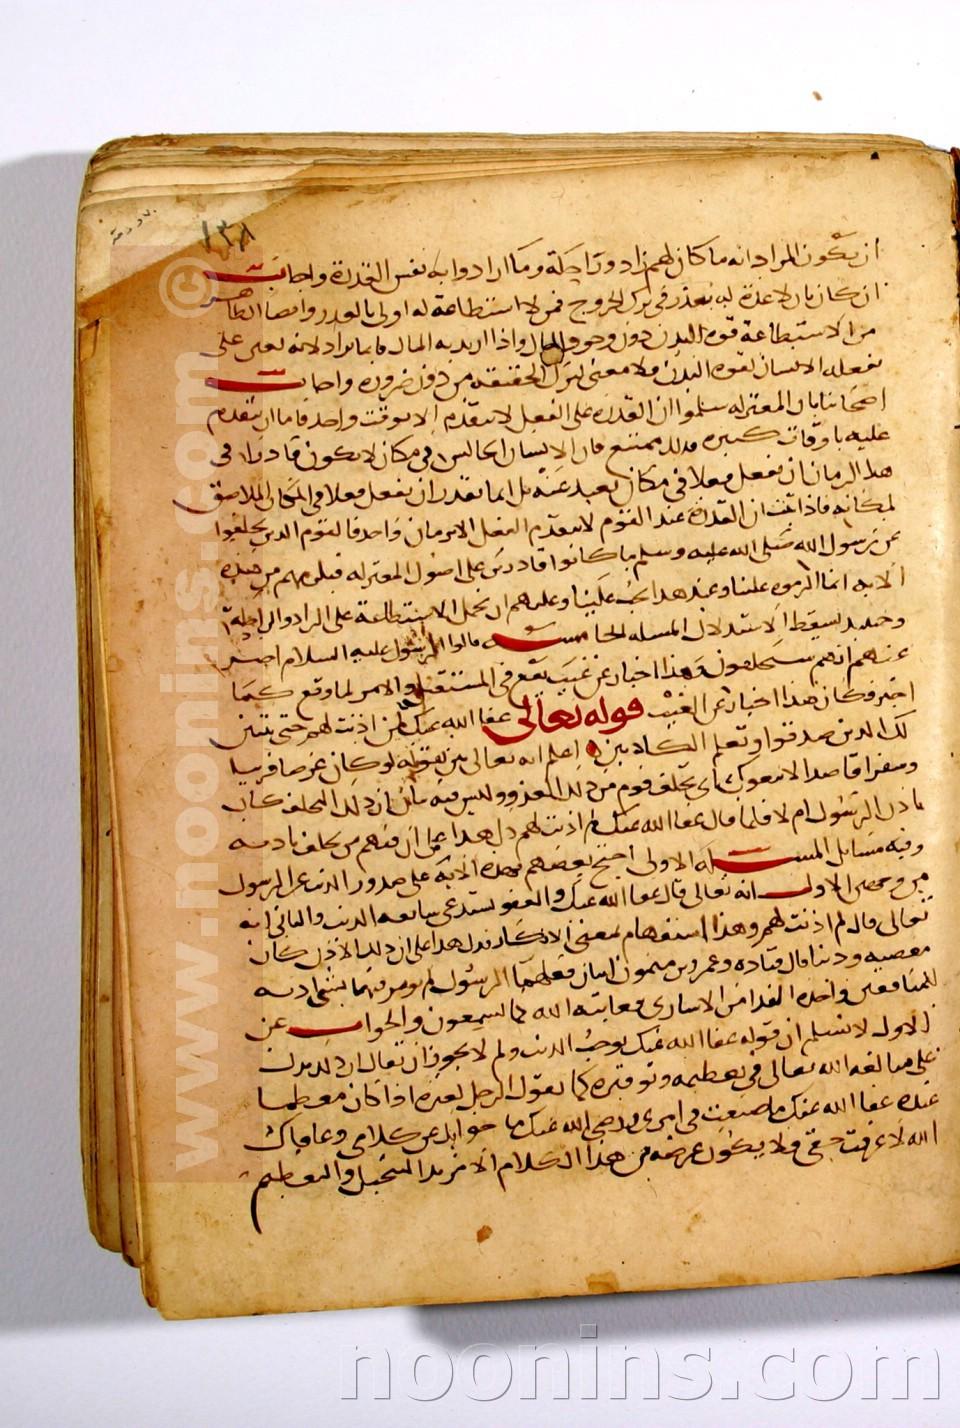 ١٣٨
ان يكون المراد انه ما كان لهم زاد وراحلة وما ارادوا به نفس القدرة واجاب
ان كان بان لا عدة له يعذر فى ترك الخروج فمن لا استطاعة له اولى بالعذر وايضا الظاهر
من الاستطاعة قوة البدن دون وجود المال واذا اريد به المال فانما يراد لانه يعين على
يفعله الانسان بقوة البدن فلا معنى لترك الحقيقة من دون ضرورة واجاب
اصحابنا بان المعتزلة سلموا ان القدرة على الفعل لا يتقدم الا بوقت واحد فاما ان يتقدم
عليه باوقات كثيرة فذلك ممتنع فان الانسان الجالس فى مكان لا يكون قادرا فى
هذا الزمان ان يفعل فعلا فى مكان بعيد عنه بل انما يقدر ان يفعل فعلا فى المكان الملاصق
لمكانه فاذا ثبت ان القدرة عند القوم لا يتقدم الفعل الا بزمان واحد فالقوم الذين تخلفوا
عن رسول الله صلى الله عليه وسلم ما كانوا قادرين على اصول المعتزلة فيلزمهم من هذه
الاية انما الزموه علينا وعند هذا يجب علينا وعليهم ان نحمل الاستطاعة على الزاد والراحلة
وحينئذ يسقط الاستدلال المسئلة الخامسة قالوا الرسول عليه السلام اخبر
عنهم انهم سيحلفون وهذا اخبار عن غيب يقع فى المستقبل والامر لما وقع كما
اخبر فكان هذا اخبارا عن الغيب قوله تعالى عفا الله عنك لم اذنت لهم حتى يتبين
لك الذين صدقوا وتعلم الكاذبين اعلم انه تعالى بين بقوله لو كان عرضا قريبا
وسفرا قاصدا لاتبعوك اى تخلف قوم من ذلك الغزو وليس فيه بيان ان ذلك التخلف كان
باذن الرسول ام لا فلما قال عفا الله عنك لم اذنت لهم دل هذا على ان فيهم من تخلف باذنه
وفيه مسائل المسئلة الاولى احتج بعضهم بهذه الاية على صدور الذنب عن الرسول
من وجهين الاول انه تعالى قال عفا الله عنك والعفو يستدعى سابقة الذنب والثانى انه
تعالى قال لم اذنت لهم وهذا استفهام بمعنى الانكار فدل هذا على ان ذلك الاذن كان
معصية وذنبا قال قتادة وعمرو بن ميمون اثنان فعلهما الرسول لم يومر فيهما بشئ اذنه
للمنافقين واخذه الفدا من الاسارى فعاتبه الله كما تسمعون والجواب عن
الاول لا نسلم ان قوله عفا الله عنك يوجب الذنب ولم لا يجوز ان يقال ان ذلك يدل
على مبالغة الله تعالى فى تعظيمه وتوقيره كما يقول الرجل لغيره اذا كان معظما
عنده عفا الله عنك ما صنعت فى امرى ورضى الله عنك ما جوابك عن كلامى وعافاك
الله لا عرفت حقى فلا يكون غرضه من هذا الكلام الا مزيد التبجيل والتعظيم
www.noonins.com ©
noonins.com